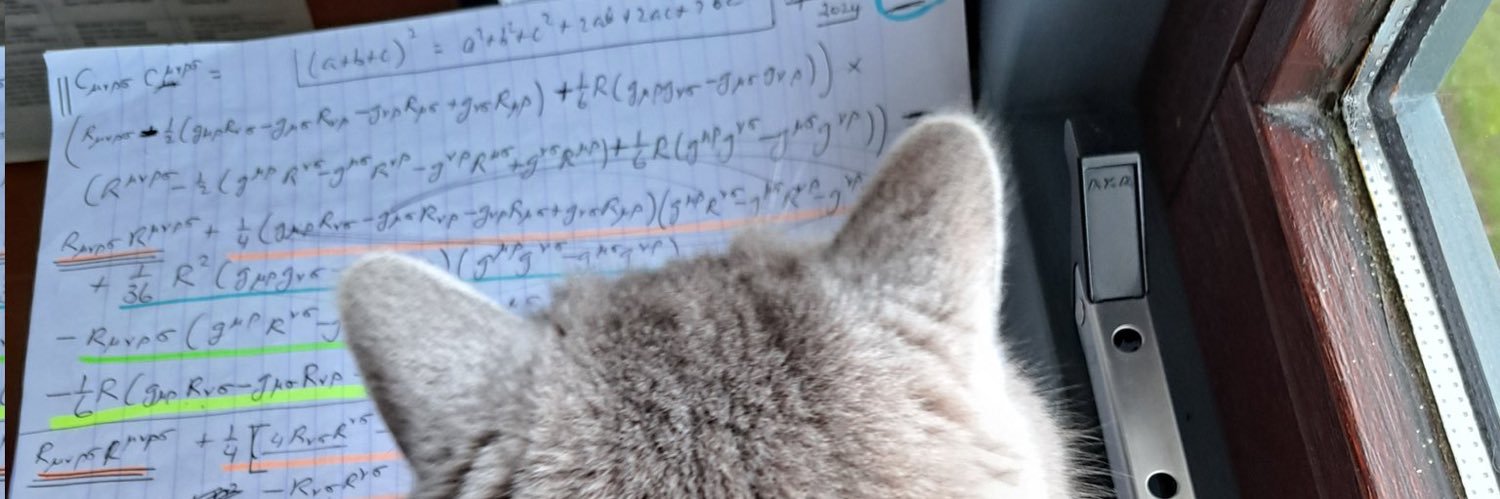 (a+b+c)² = a²+b²+c²+2ab+2ac+2bc
2024
C_{μνρσ} C^{μνρσ} =
(R_{μνρσ} - ½(g_{μρ}R_{νσ} - g_{μσ}R_{νρ} - g_{νρ}R_{μσ} + g_{νσ}R_{μρ}) + ⅙R(g_{μρ}g_{νσ} - g_{μσ}g_{νρ})) ×
(R^{μνρσ} - ½(g^{μρ}R^{νσ} - g^{μσ}R^{νρ} - g^{νρ}R^{μσ} + g^{νσ}R^{μρ}) + ⅙R(g^{μρ}g^{νσ} - g^{μσ}g^{νρ})) =
R_{μνρσ}R^{μνρσ} + ¼(g_{μρ}R_{νσ} - g_{μσ}R_{νρ} - g_{νρ}R_{μσ} + g_{νσ}R_{μρ})(g^{μρ}R^{νσ} - g^{μσ}R^{νρ} - g^{νρ}
+ 1/36 R²(g_{μρ}g_{νσ} - )(g^{μρ}g^{νσ} - g^{μσ}g^{νρ})
- R_{μνρσ}(g^{μρ}R^{νσ} - g
- ⅙R(g_{μρ}R_{νσ} - g_{μσ}R_{νρ}
R_{μνρσ}R^{μνρσ} + ¼[4R_{νσ}R^{νσ} -
- R_{νσ}R^{νσ}